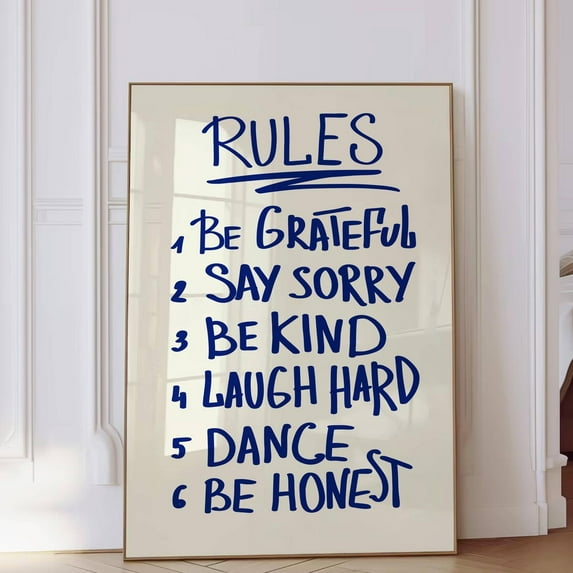 RULES
1 BE GRATEFUL
2 SAY SORRY
3 BE KIND
4 LAUGH HARD
5 DANCE
6 BE HONEST